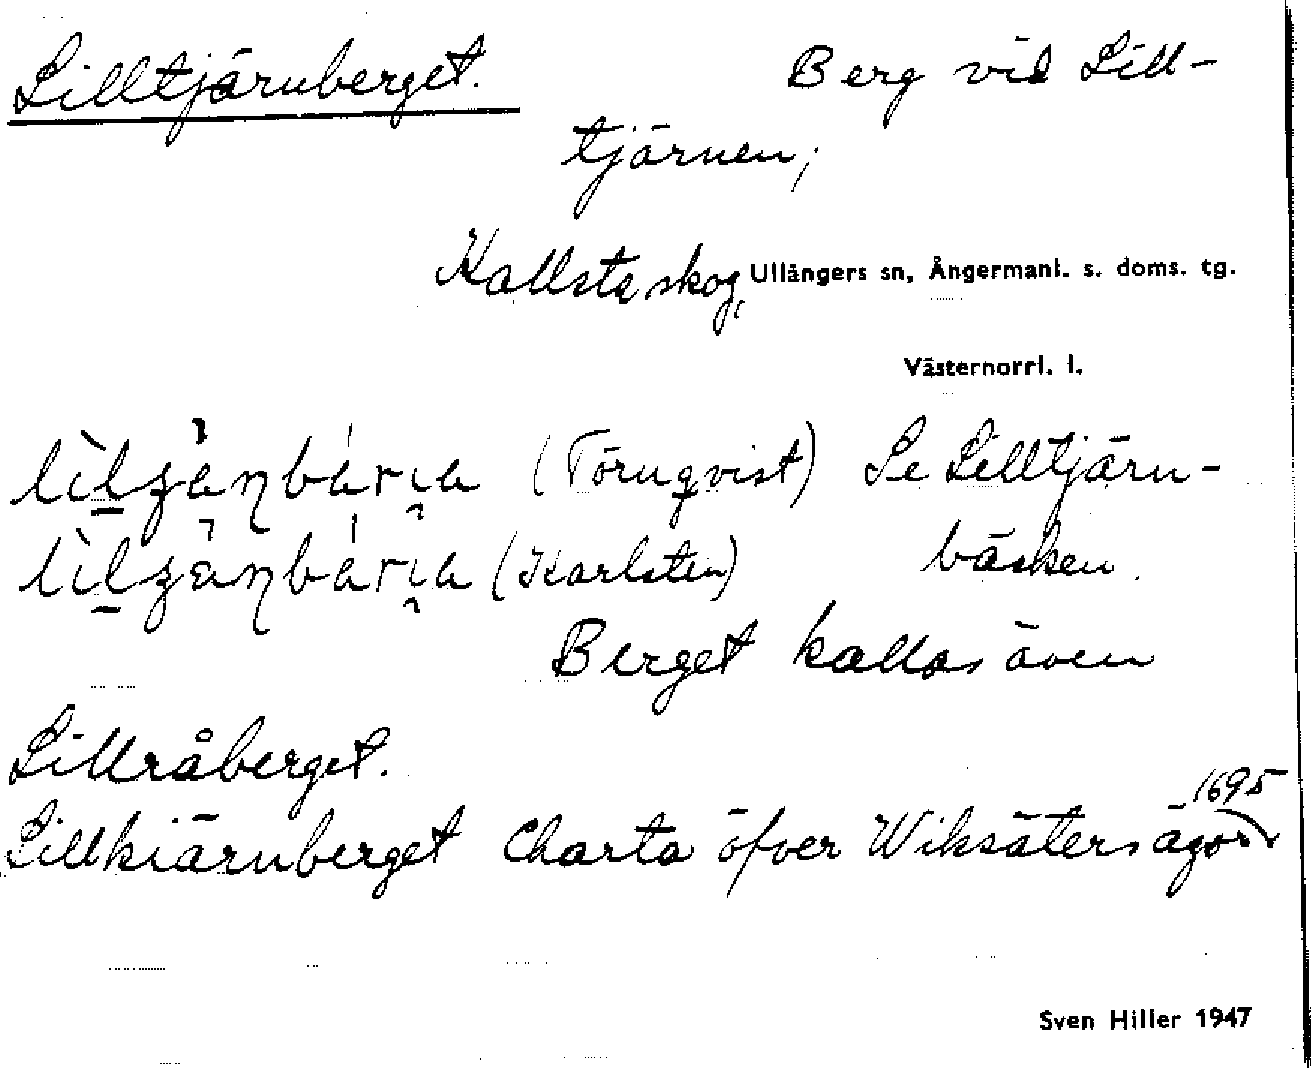 Lilltjärnberget. Berg vid Lill-
tjärnen;
Kallsta skog, Ullångers sn, Ångermanl. s. doms. tg.
Västernorrl. l.
(Törnqvist) Se Lilltjärn-
(Karlsten) bäcken.
Berget kallas även
Lillråberget.
Lillkiärnberget Charta öfver Wiksäters ägor 1695
Sven Hiller 1947